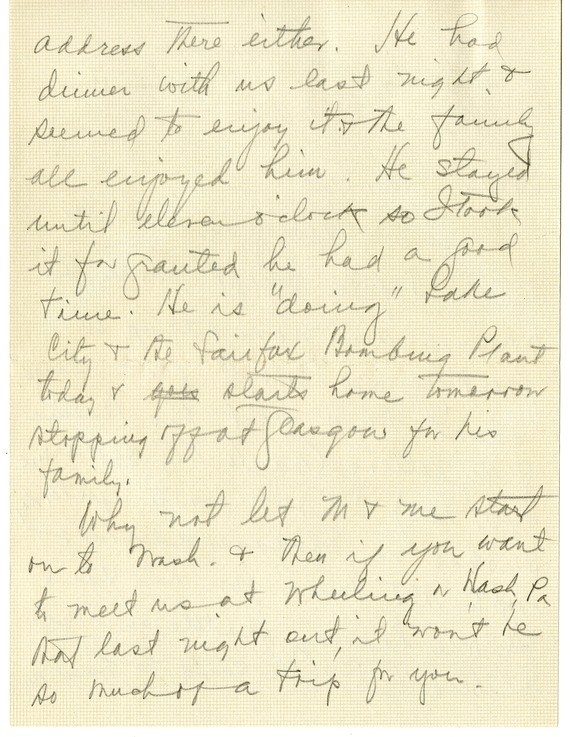 address there either. He had
dinner with us last night &
seemed to enjoy it & the family
all enjoyed him. He stayed
until eleven o'clock so I took
it for granted he had a good
time. He is "doing" Lake
City & the Fairfax Bombing Plant
today & goes starts home tomorrow
stopping off at Glasgow for his
family.
Why not let M & me start
on to Wash. & then if you want
to meet us at Wheeling or Wash, Pa
that last night out, it won't be
so much of a trip for you.